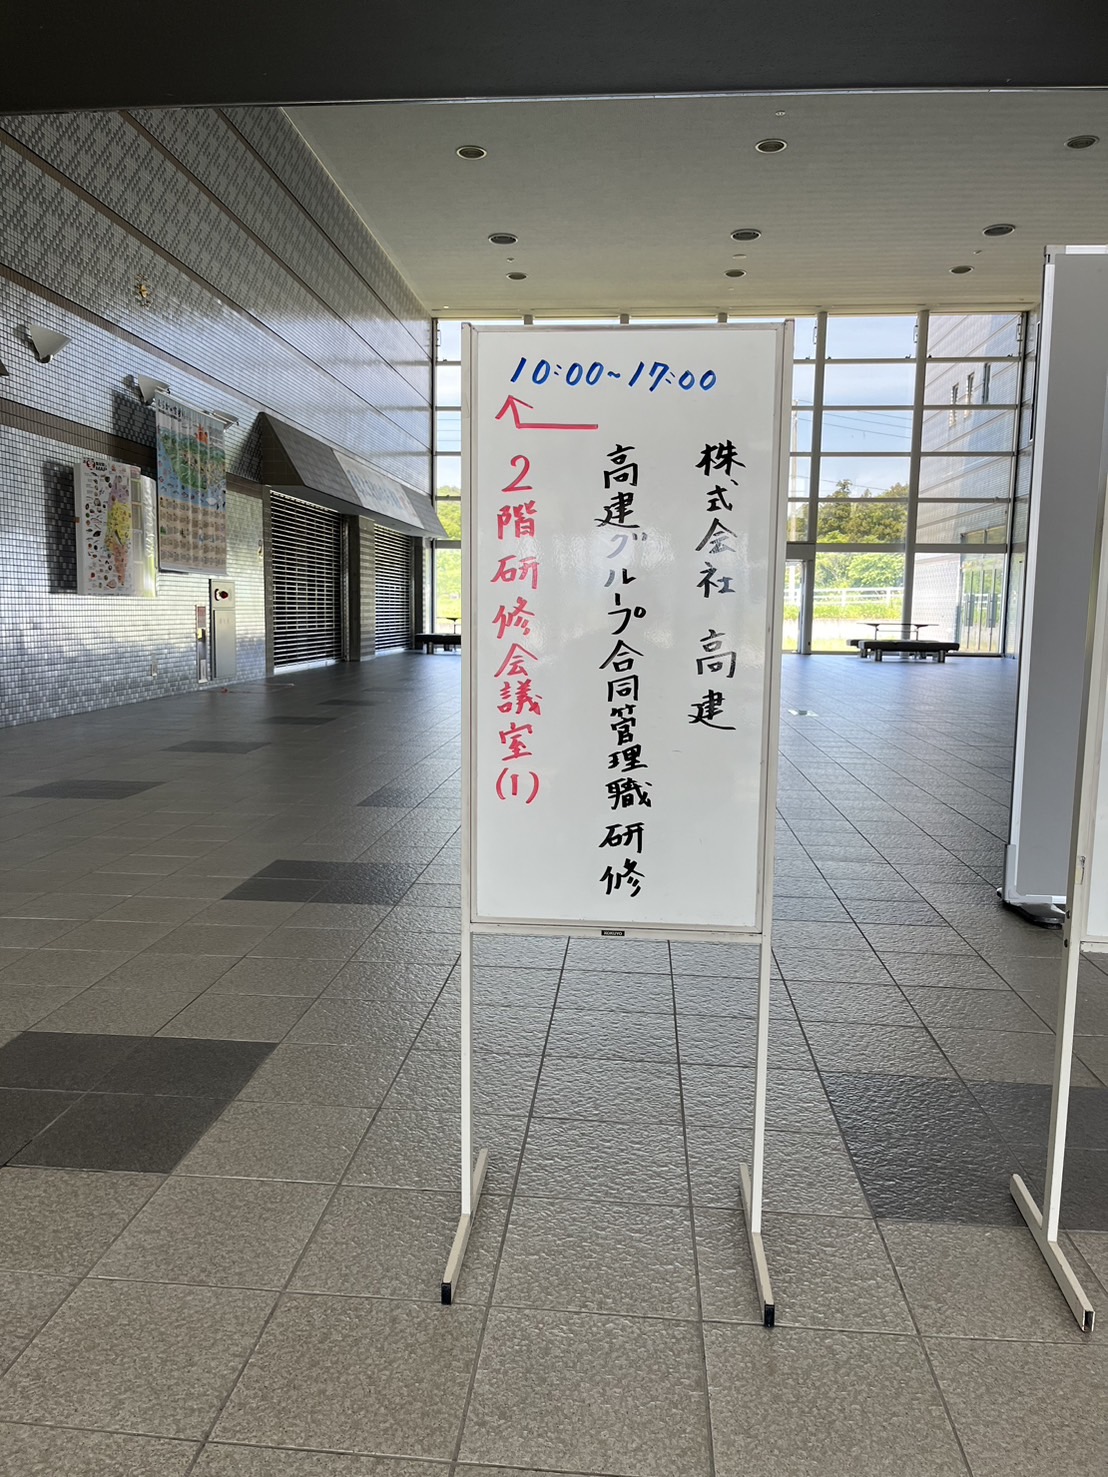 10:00~17:00
株式会社 高建
高建グループ合同管理職研修
2階研修会議室(1)
KOKUYO